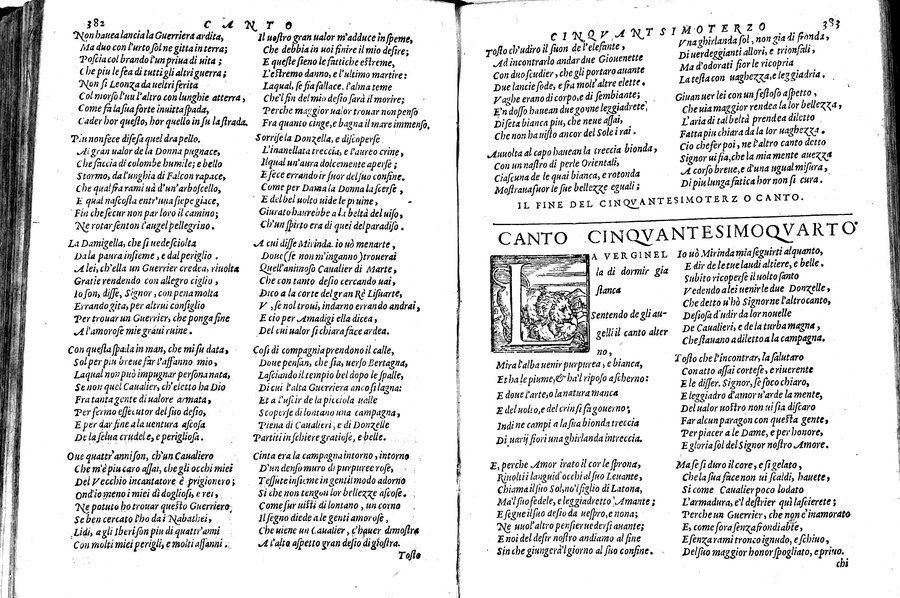 382 CANTO
Non hauea lancia la Guerriera ardita,
Ma duo con l'urto sol ne gitta in terra;
Poscia col brando l'un priua di uita;
Che piu le fea di tutti gli altri guerra;
Non si Leonza da ueltri ferita
Col morso l'uu l'altro con l'unghie atterra,
Come fa la sua forte inuitta spada,
Cader hor questo, hor quello in su la strada.
Piu non fece difesa quel drapello,
Al gran ualor de la Donna pugnace,
Che faccia di colombe humile; e bello
Stormo, da l'unghia di Falcon rapace,
Che qual fra rami uà d'un'arboscello,
E qual nascosta entr'una siepe giace,
Fin che secur non par loro il camino;
Ne rotar senton l'angel pellegrino.
La Damigella, che si uede sciolta
Da la paura insieme, e dal periglio.
A lei, ch'ella un Guerrier credea, riuolta
Gratie rendendo con allegro ciglio,
Io son, disse, Signor, con pena molta
Errando gita, per altrui consiglio
Per trouar un Guerrier, che ponga fine
A l'amorose mie graui ruine.
Con questa spada in man, che mi fu data,
Sol per piu breue far l'affanno mio,
La qual non può impugnar persona nata,
Se non quel Caualier, ch'eletto ha Dio
Fra tanta gente di ualore armata,
Per fermo essecutor del suo desio,
E per dar fine a la uentura ascosa
De la selua crudel e, e perigliosa.
Oue quattr'anni son, ch'un Caualiero
Che m'è piu caro assai, che gli occhi miei
Del Vecchio incantatore è prigionero;
Ond'io meno i miei dì dogliosi, e rei,
Ne potuto ho trouar questo Guerriero
Se ben cercato l'ho da i Nabathei,
Lidi, a gli Iberi son piu di quatr'anni
Con molti miei perigli, e molti affanni.
Il uostro gran ualor m'adduce in speme,
Che debbia in uoi finire il mio desire;
E queste sieno le fattiche estreme,
L'estremo danno, e l'ultimo martire:
La qual, se fia fallace, l'alma teme
Che'l fin del mio desio sarà il morire;
Perche maggior ualor trouar non penso
Fra quanto cinge, e bagna il mare immenso.
Sorrise la Donzella, e discoperse
L'inanellata treccia, e l'aureo crine,
Il qual un'aura dolcemente aperse;
E fece errando ir fuor del suo confine.
Come per Dama la Donna la scerse,
E del bel uolto uide le pruine,
Giurato haurebbe a la beltà del uiso,
Ch'un spirto era di quei del paradiso.
A cui disse Mirinda. io uò menarte,
Doue (se non m'inganno) trouerai
Quell'animoso Caualier di Marte,
Che con tanto desio cercando uai,
Dico a la corte del gran Rè Lisuarte,
V, se nol troui, indarno errando andrai,
E cio per Amadigi ella dicea,
Del cui ualor si chiara face ardea.
Cosi di compagnia prendono il calle,
Doue pensan, che sia, uerso Bertagna,
Lasciando il tempio bel dopo le spalle,
Di cui l'alta Guerriera anco si lagna:
Et a l'uscir de la picciola ualle
Scoperse di lontano una campagna,
Piena di Caualieri, e di Donzelle
Partiti in schiere gratiose, e belle.
Cinta era la campagna intorno, intorno
D'un denso muro di purpuree rose,
Tessute insieme in gentil modo adorno
Si che non tengon lor bellezze ascose.
Come fur uisti di lontano, un corno
Il segno diede a le genti amorose,
Che uiene un Caualier, c'hauer dimostra
A l'alto aspetto gran desio di giostra.
Tosto
CINQVANTESIMOTERZO 383
Tosto ch'udiro il suon de l'elefante,
Ad incontrarlo andar due Giouenette
Con duo scudier, che gli portaro auante
Due lancie sode, e fra molt'altre elette.
Vaghe erano di corpo, e di sembiante;
E'n dosso hauean due gonne leggiadrette,
Di seta bianca piu, che neue assai,
Che non ha uisto ancor del Sole i rai.
Auuolta al capo hauean la treccia bionda,
Con un nastro di perle Orientali,
Ciascuna de le quai bianca, e rotonda
Mostraua fuor le sue bellezze eguali;
Vna ghirlanda sol, non gia di fronda,
Di uerdeggianti allori, e trionfali,
Ma d'odorati fior le ricopria
La testa con uaghezza, e leggiadria.
Giuan uer lei con un festoso aspetto,
Che uia maggior rendea la lor bellezza,
L'aria di tal beltà prendea diletto
Fatta piu chiara da la lor uaghezza.
Cio che fer poi, ne l'altro canto detto
Signor ui fia, che la mia mente auezza
A corso breue, e d'una ugual misura,
Di piu lunga fatica hor non si cura.
IL FINE DEL CINQVANTESIMOTERZO CANTO.
CANTO CINQVANTESIMOQVARTO
LA VERGINEL
la di dormir gia
stanca
Sentendo de gli au-
gelli il canto alter
no,
Mira l'alba uenir purpurea, e bianca,
Et ha le piume, & ha'l riposo a scherno:
E doue l'arte, o la natura manca
E del uolto, e del crin si fa gouerno;
Indi ne campi a la sua bionda treccia
Di uarij fiori una ghirlanda intreccia.
E, perche Amor irato il cor le sprona,
Riuolti i languid'occhi al suo Leuante,
Chiama il suo Sol, no'l figlio di Latona,
Ma'l suo fedele, e leggiadretto Amante;
E segue il suo desio da uespro, e nona;
Ne uuol'altro pensier uedersi auante;
E noi del desir nostro andiamo al fine
Sin che giungerà'l giorno al suo confine.
Io uò Mirinda mia seguirti alquanto,
E dir de le tue laudi altiere, e belle.
Subito ricoperse il uolto santo
Vedendo a lei uenirle due Donzelle,
Che detto u'hò Signor ne l'altro canto,
Desiosa d'udir da lor nouelle
De Caualieri, e de la turba magna,
Che stauano a diletto a la campagna.
Tosto che l'incontrar, la salutaro
Con atto assai cortese, e riuerente
E le disser. Signor, se foco chiaro,
E leggiadro d'amor u'arde la mente,
Del ualor uostro non ui sia discaro
Far alcun paragon con questa gente,
Per piacer a le Dame, e per honore,
E gloria sol del Signor nostro Amore.
Ma se si duro il core, e si gelato,
Che la sua face non ui scaldi, hauete,
Si come Caualier poco lodato
L'armadura, e'l destrier quì lascierete;
Perche un Guerrier, che non è inamorato
E, come fora senza frondi abete,
E senza rami tronco ignudo, e schiuo,
Del suo maggior honor spogliato, e priuo.
chi